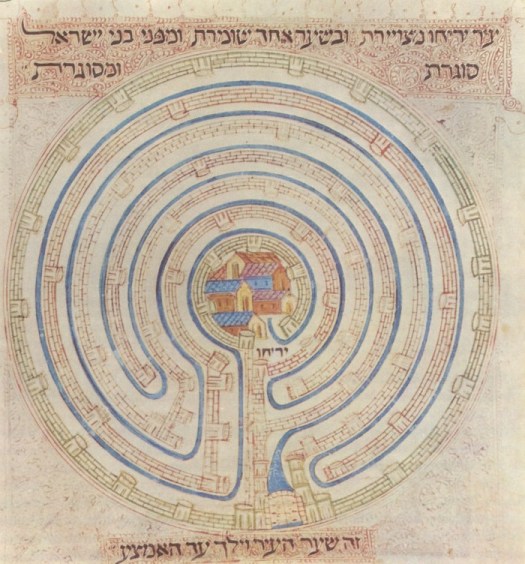 עיר יריחו מצויירת ובשער אחד ומפני בני ישראל
סוגרת ומסוגרת
יריחו
זה שער העיר וילך עד האמצע